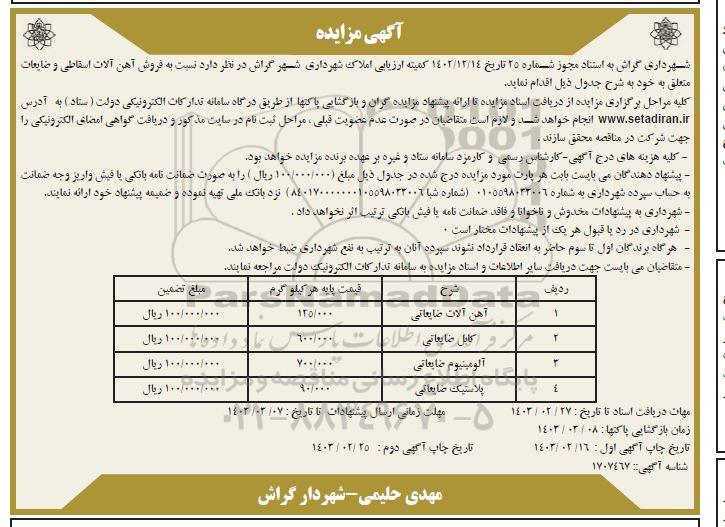 آگهی مزایده
شهرداری گراش به استناد مجوز شماره ۲۵ تاریخ ۱۴۰۲/۱۲/۱۴ کمیته ارزیابی املاک شهرداری شهر گراش در نظر دارد نسبت به فروش آهن آلات اسقاطی و ضایعات
متعلق به خود به شرح جدول ذیل اقدام نماید.
کلیه مراحل برگزاری مزایده از دریافت اسناد مزایده تا ارائه پیشنهاد مزایده گران و بازگشایی پاکتها از طریق درگاه سامانه تدارکات الکترونیکی دولت ( ستاد ) به آدرس
www.setadiran.ir انجام خواهد شد و لازم است متقاضیان در صورت عدم عضویت قبلی ، مراحل ثبت نام در سایت مذکور و دریافت گواهی امضای الکترونیکی را
جهت شرکت در مناقصه محقق سازند.
- کلیه هزینه های درج آگهی-کارشناس رسمی و کارمزد سامانه ستاد و غیره بر عهده برنده مزایده خواهد بود.
- پیشنهاد دهندگان می بایست بابت هر پارت مورد مزایده درج شده در جدول ذیل مبلغ (۱۰۰/۰۰۰/۰۰۰ ریال ) را به صورت ضمانت نامه بانکی یا فیش واریز وجه ضمانت
به حساب سپرده شهرداری به شماره ۰۱۰۵۵۹۸۰۳۳۰۰۶ (شماره شبا ۸۴۰۱۷۰۰۰۰۰۰۰۱۰۵۵۹۸۰۳۳۰۰۶ ) نزد بانک ملی تهیه نموده و ضمیمه پیشنهاد خود ارائه نمایند.
- شهرداری به پیشنهادات مخدوش و ناخوانا و فاقد ضمانت نامه یا فیش بانکی ترتیب اثر نخواهد داد .
- شهرداری در رد یا قبول هر یک از پیشنهادات مختار است ۰
- هرگاه برندگان اول تا سوم حاضر به انعقاد قرارداد نشوند سپرده آنان به ترتیب به نفع شهرداری ضبط خواهد شد.
- متقاضیان می بایست جهت دریافت سایر اطلاعات و اسناد مزایده به سامانه تدارکات الکترونیک دولت مراجعه نمایند.
ردیف شرح قیمت پایه هر کیلو گرم مبلغ تضمین
۱ آهن آلات ضایعاتی ۱۲۵/۰۰۰ ۱۰۰/۰۰۰/۰۰۰ ریال
۲ کابل ضایعاتی ۶۰۰/۰۰۰ ۱۰۰/۰۰۰/۰۰۰ ریال
۳ آلومینیوم ضایعاتی ۷۰۰/۰۰۰ ۱۰۰/۰۰۰/۰۰۰ ریال
۴ پلاستیک ضایعاتی ۹۰/۰۰۰ ۱۰۰/۰۰۰/۰۰۰ ریال
مهلت دریافت اسناد تا تاریخ : ۲۷ / ۰۲ / ۱۴۰۳ مهلت زمانی ارسال پیشنهادات تا تاریخ : ۰۷ / ۰۳ / ۱۴۰۳
زمان بازگشایی پاکتها : ۰۸ / ۰۳ / ۱۴۰۳
تاریخ چاپ آگهی اول : ۱۶ / ۰۲ / ۱۴۰۳ تاریخ چاپ آگهی دوم : ۲۵ / ۰۲ / ۱۴۰۳
شناسه آگهی:: ۱۷۰۷۴۶۷
مهدی حلیمی-شهردار گراش
ParsNamadData
مرکز فرآوری اطلاعات پارس نماد داده ها
پایگاه اطلاع رسانی مناقصه و مزایده
۰۲۱-۸۸۳۴۹۶۷۰-۵